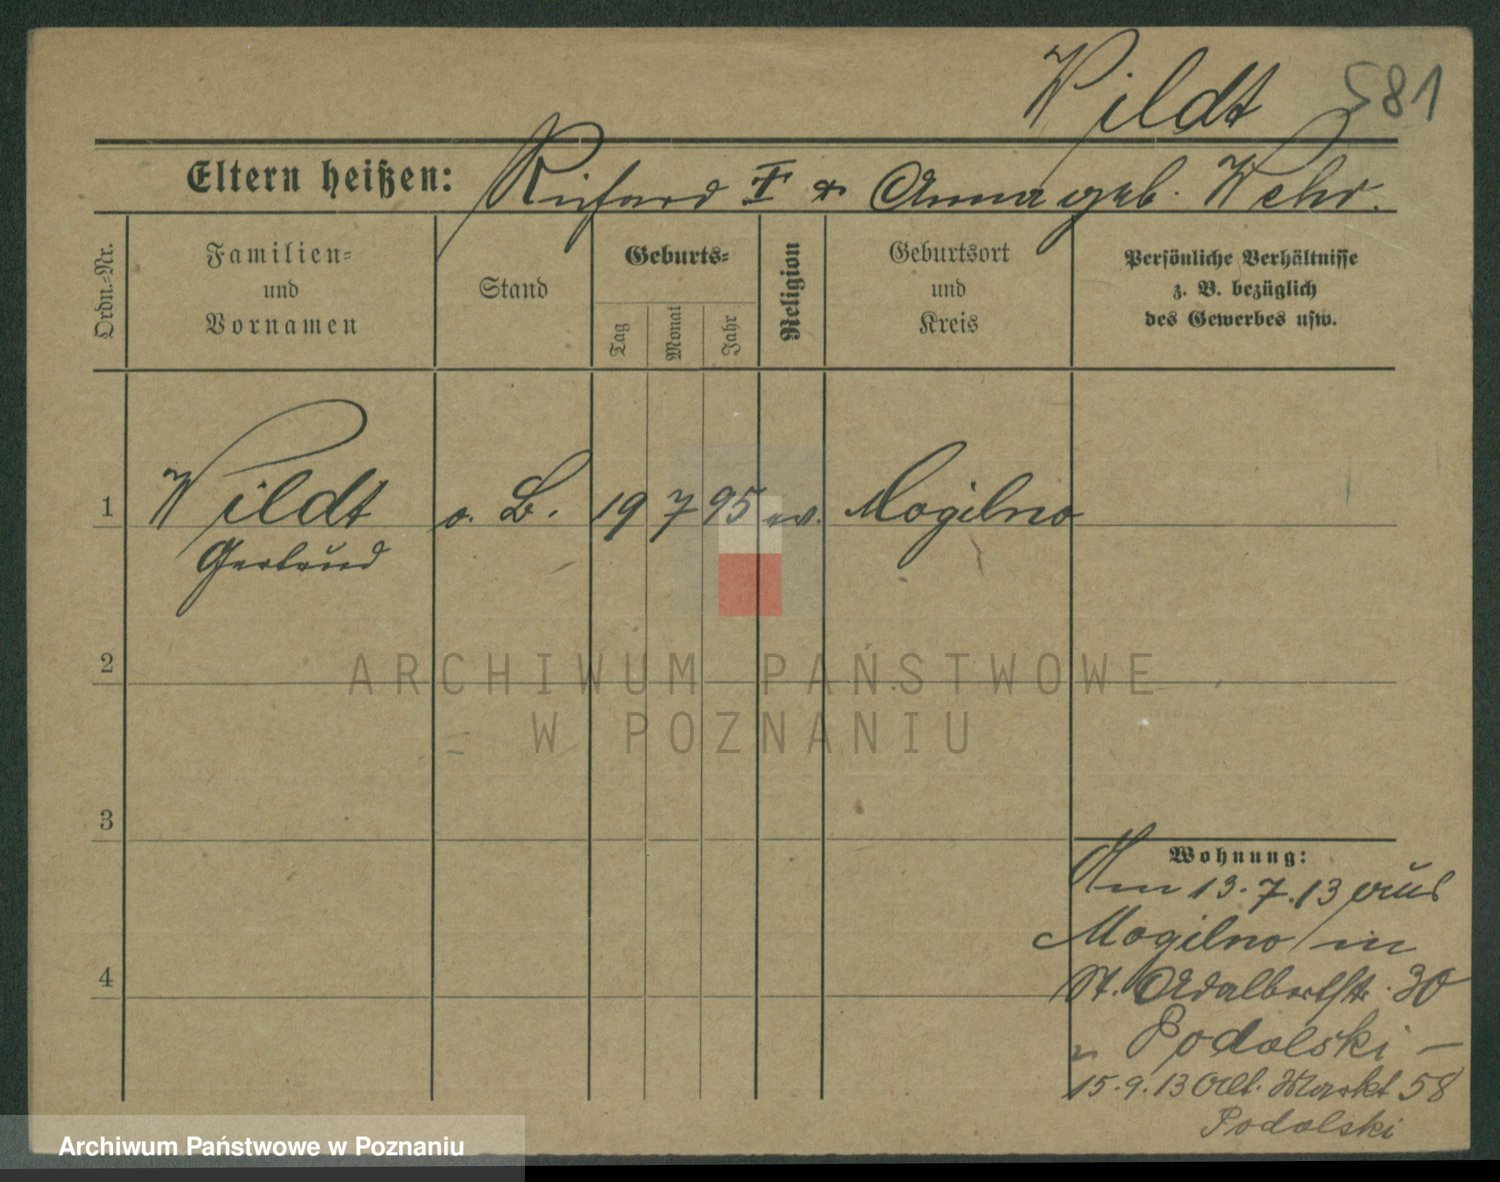 Wildt 581
Eltern heißen: Richard I u Anna geb. Wehr.
Ordn.=Nr.
Familien=
und
Vornamen
Stand
Geburts=
Tag
Monat
Jahr
Religion
Geburtsort
und
Kreis
Persönliche Verhältnisse
z. B. bezüglich
des Gewerbes usw.
1 Wildt o. B. 19 7 95 ev. Mogilno
Gertrud
2
ARCHIWUM PAŃSTWOWE
W POZNANIU
3
Wohnung:
Am 13.7.13 aus
Mogilno in
4 St. Adalbertstr. 30
Podolski —
15.9.13 Alt. Markt 58
Podolski
Archiwum Państwowe w Poznaniu